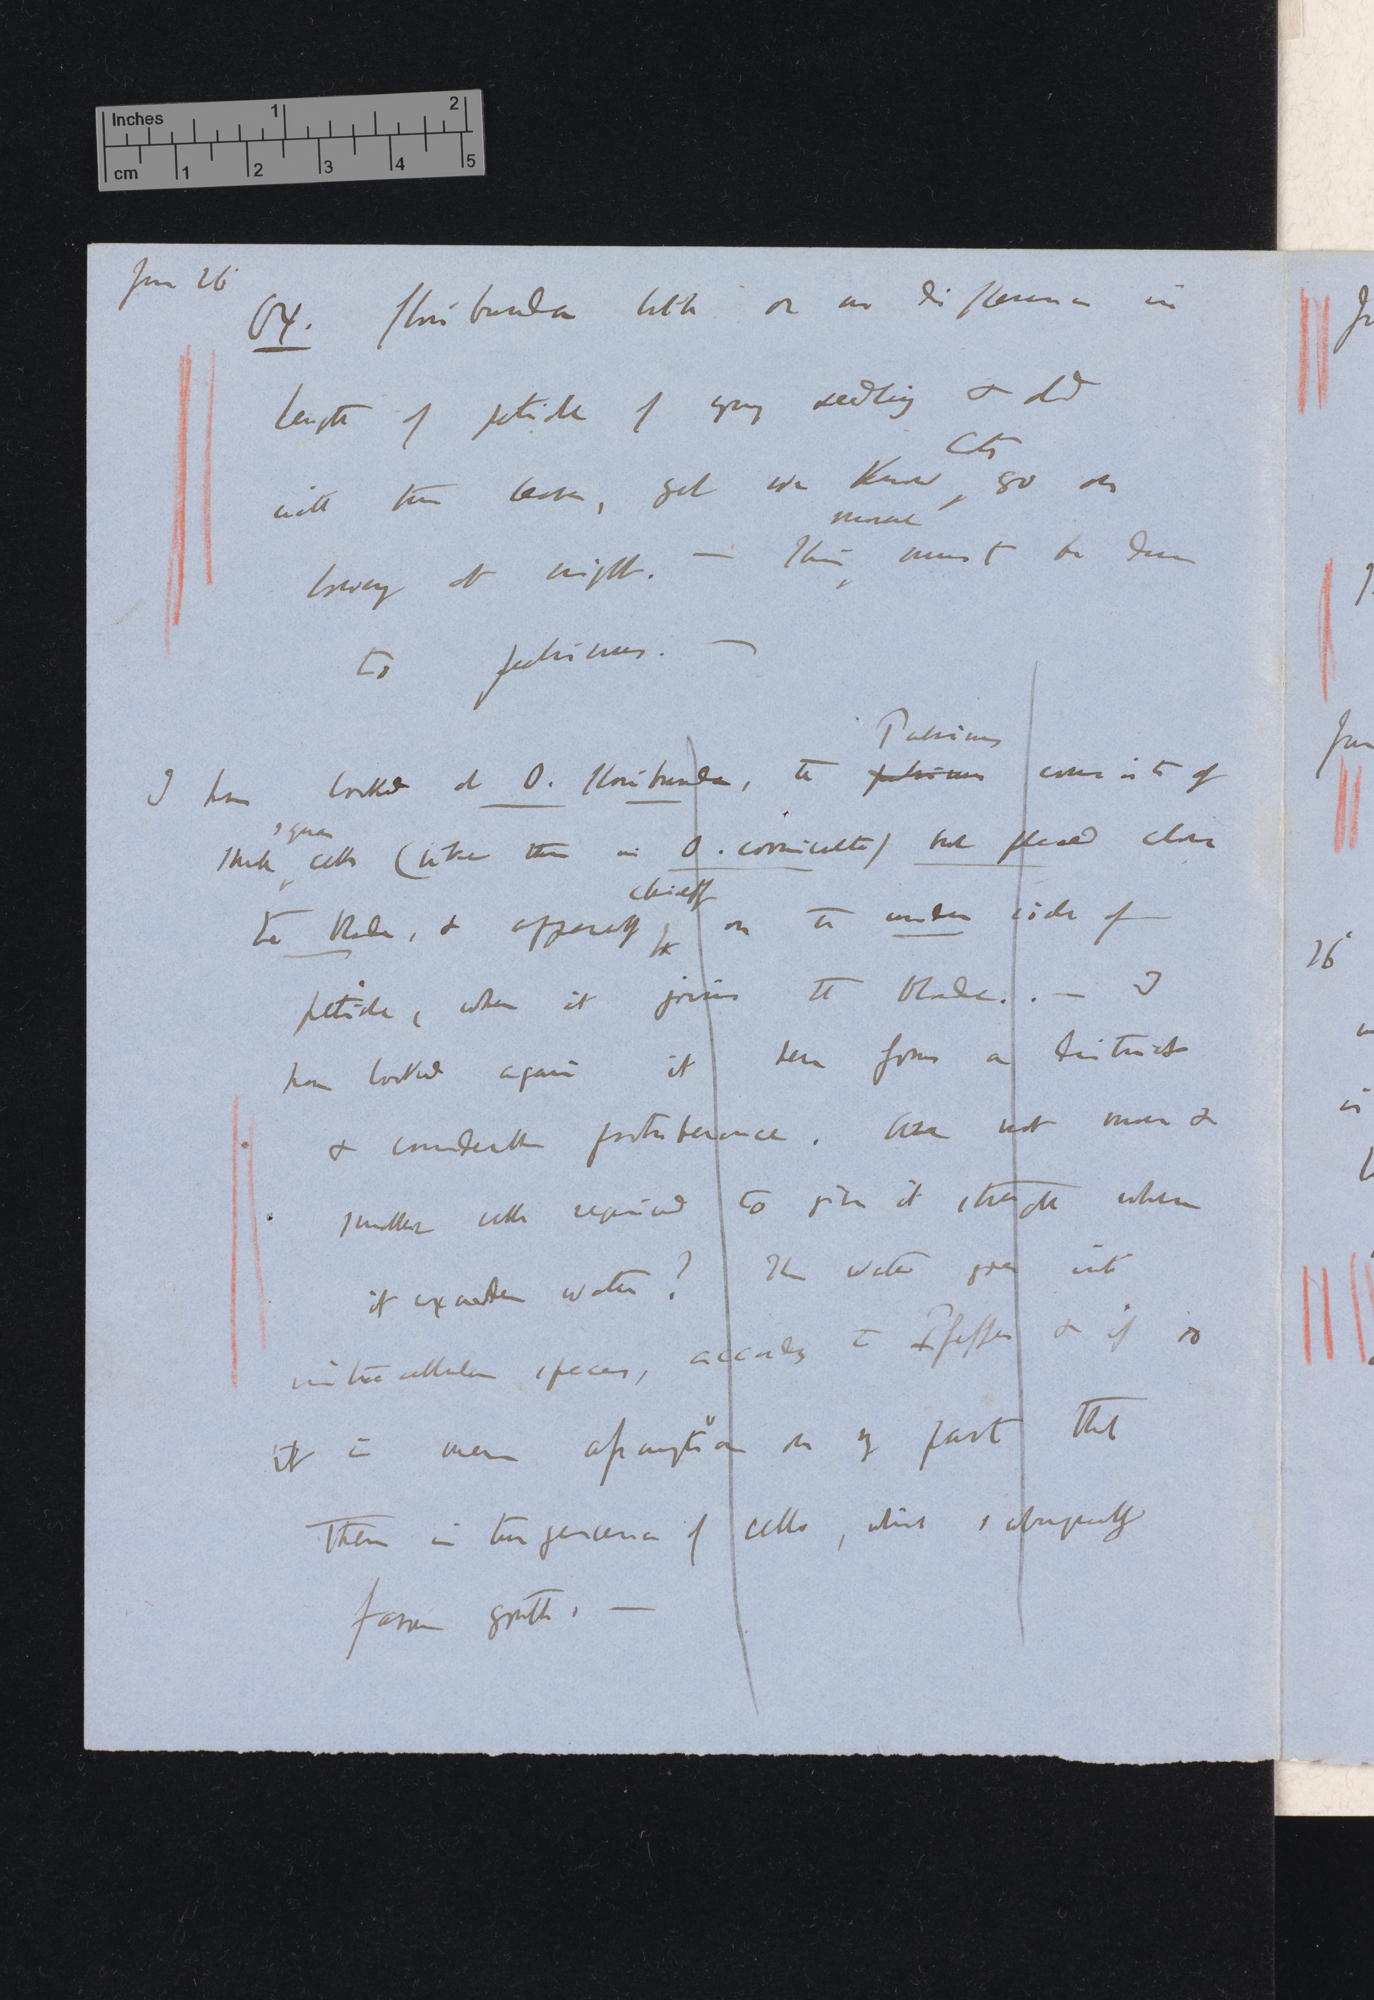 Inches 1 2
cm 1 2 3 4 5
Jun 26
Ox. floribunda little or no difference in
length of petiole of young seedling & old
with three leaves, yet we know Cots go on
moving at night. — This movement must be due
to pulvinus. —
I have looked at O. floribunda, the pulvinus Pulvinus consists of
square cells (like those in O. corniculata) not placed close
the blade, & apparently chiefly on the under side of
petiole, where it joins the blade. — I
have looked again it here forms a distinct
& considerable protuberance. Are not more &
smaller cells required to give it strength when
it exudes water? The water goes into
intercellular spaces, according to Pfeffer & if so
it is mere assumption on my part that
There is turgescence of cells, which subsequently
favour growth. —
26